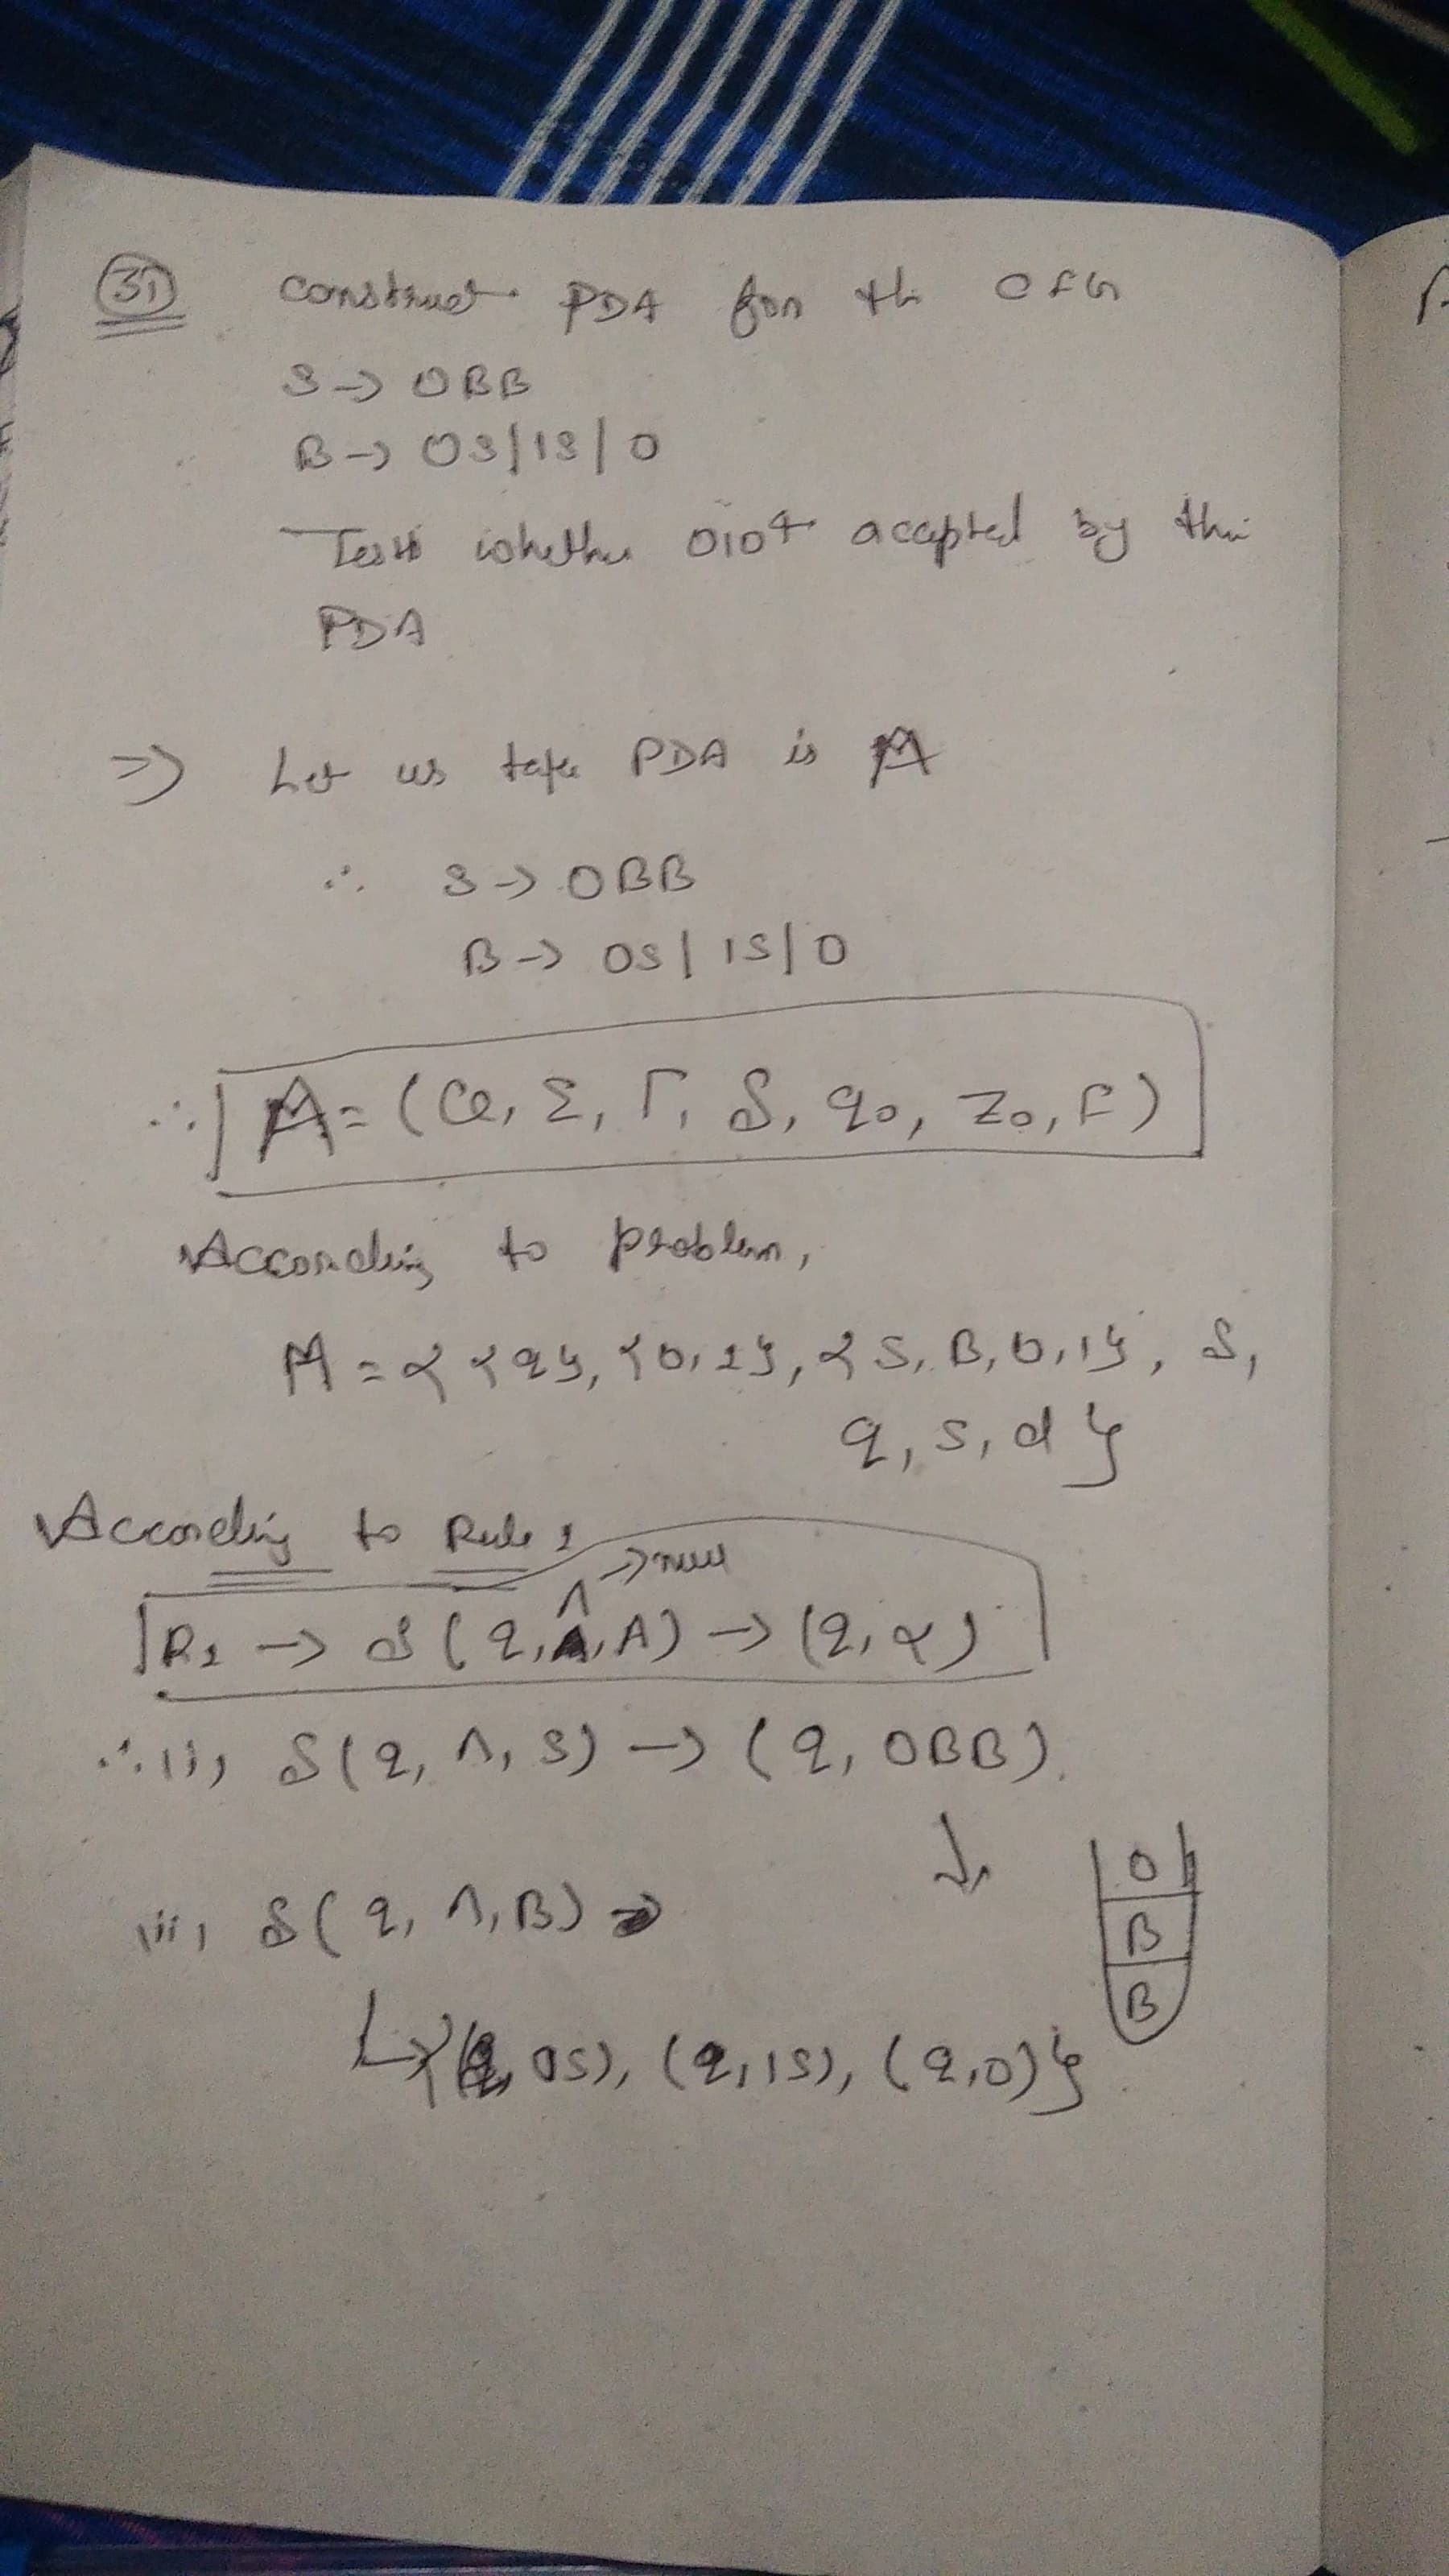 31
construct PDA for th CFG
S → 0BB
B → 0S/1S/0
Test whether 010⁴ accepted by this
PDA
⇒ Let us take PDA is M
∴ S → 0BB
B → 0S | 1S | 0
∴ M = (Q, Σ, Γ, δ, q₀, Z₀, F)
According to problem,
M = { {q}, {0,1}, {S, B, 0, 1}, δ,
q, S, ϕ }
According to Rule 1
→ null
R1 → δ(q, Λ, A) → (q, α)
∴ i) δ(q, Λ, S) → (q, 0BB).
↓
0
B
B
ii) δ(q, Λ, B) →
↳ {(q, 0S), (q, 1S), (q, 0)}